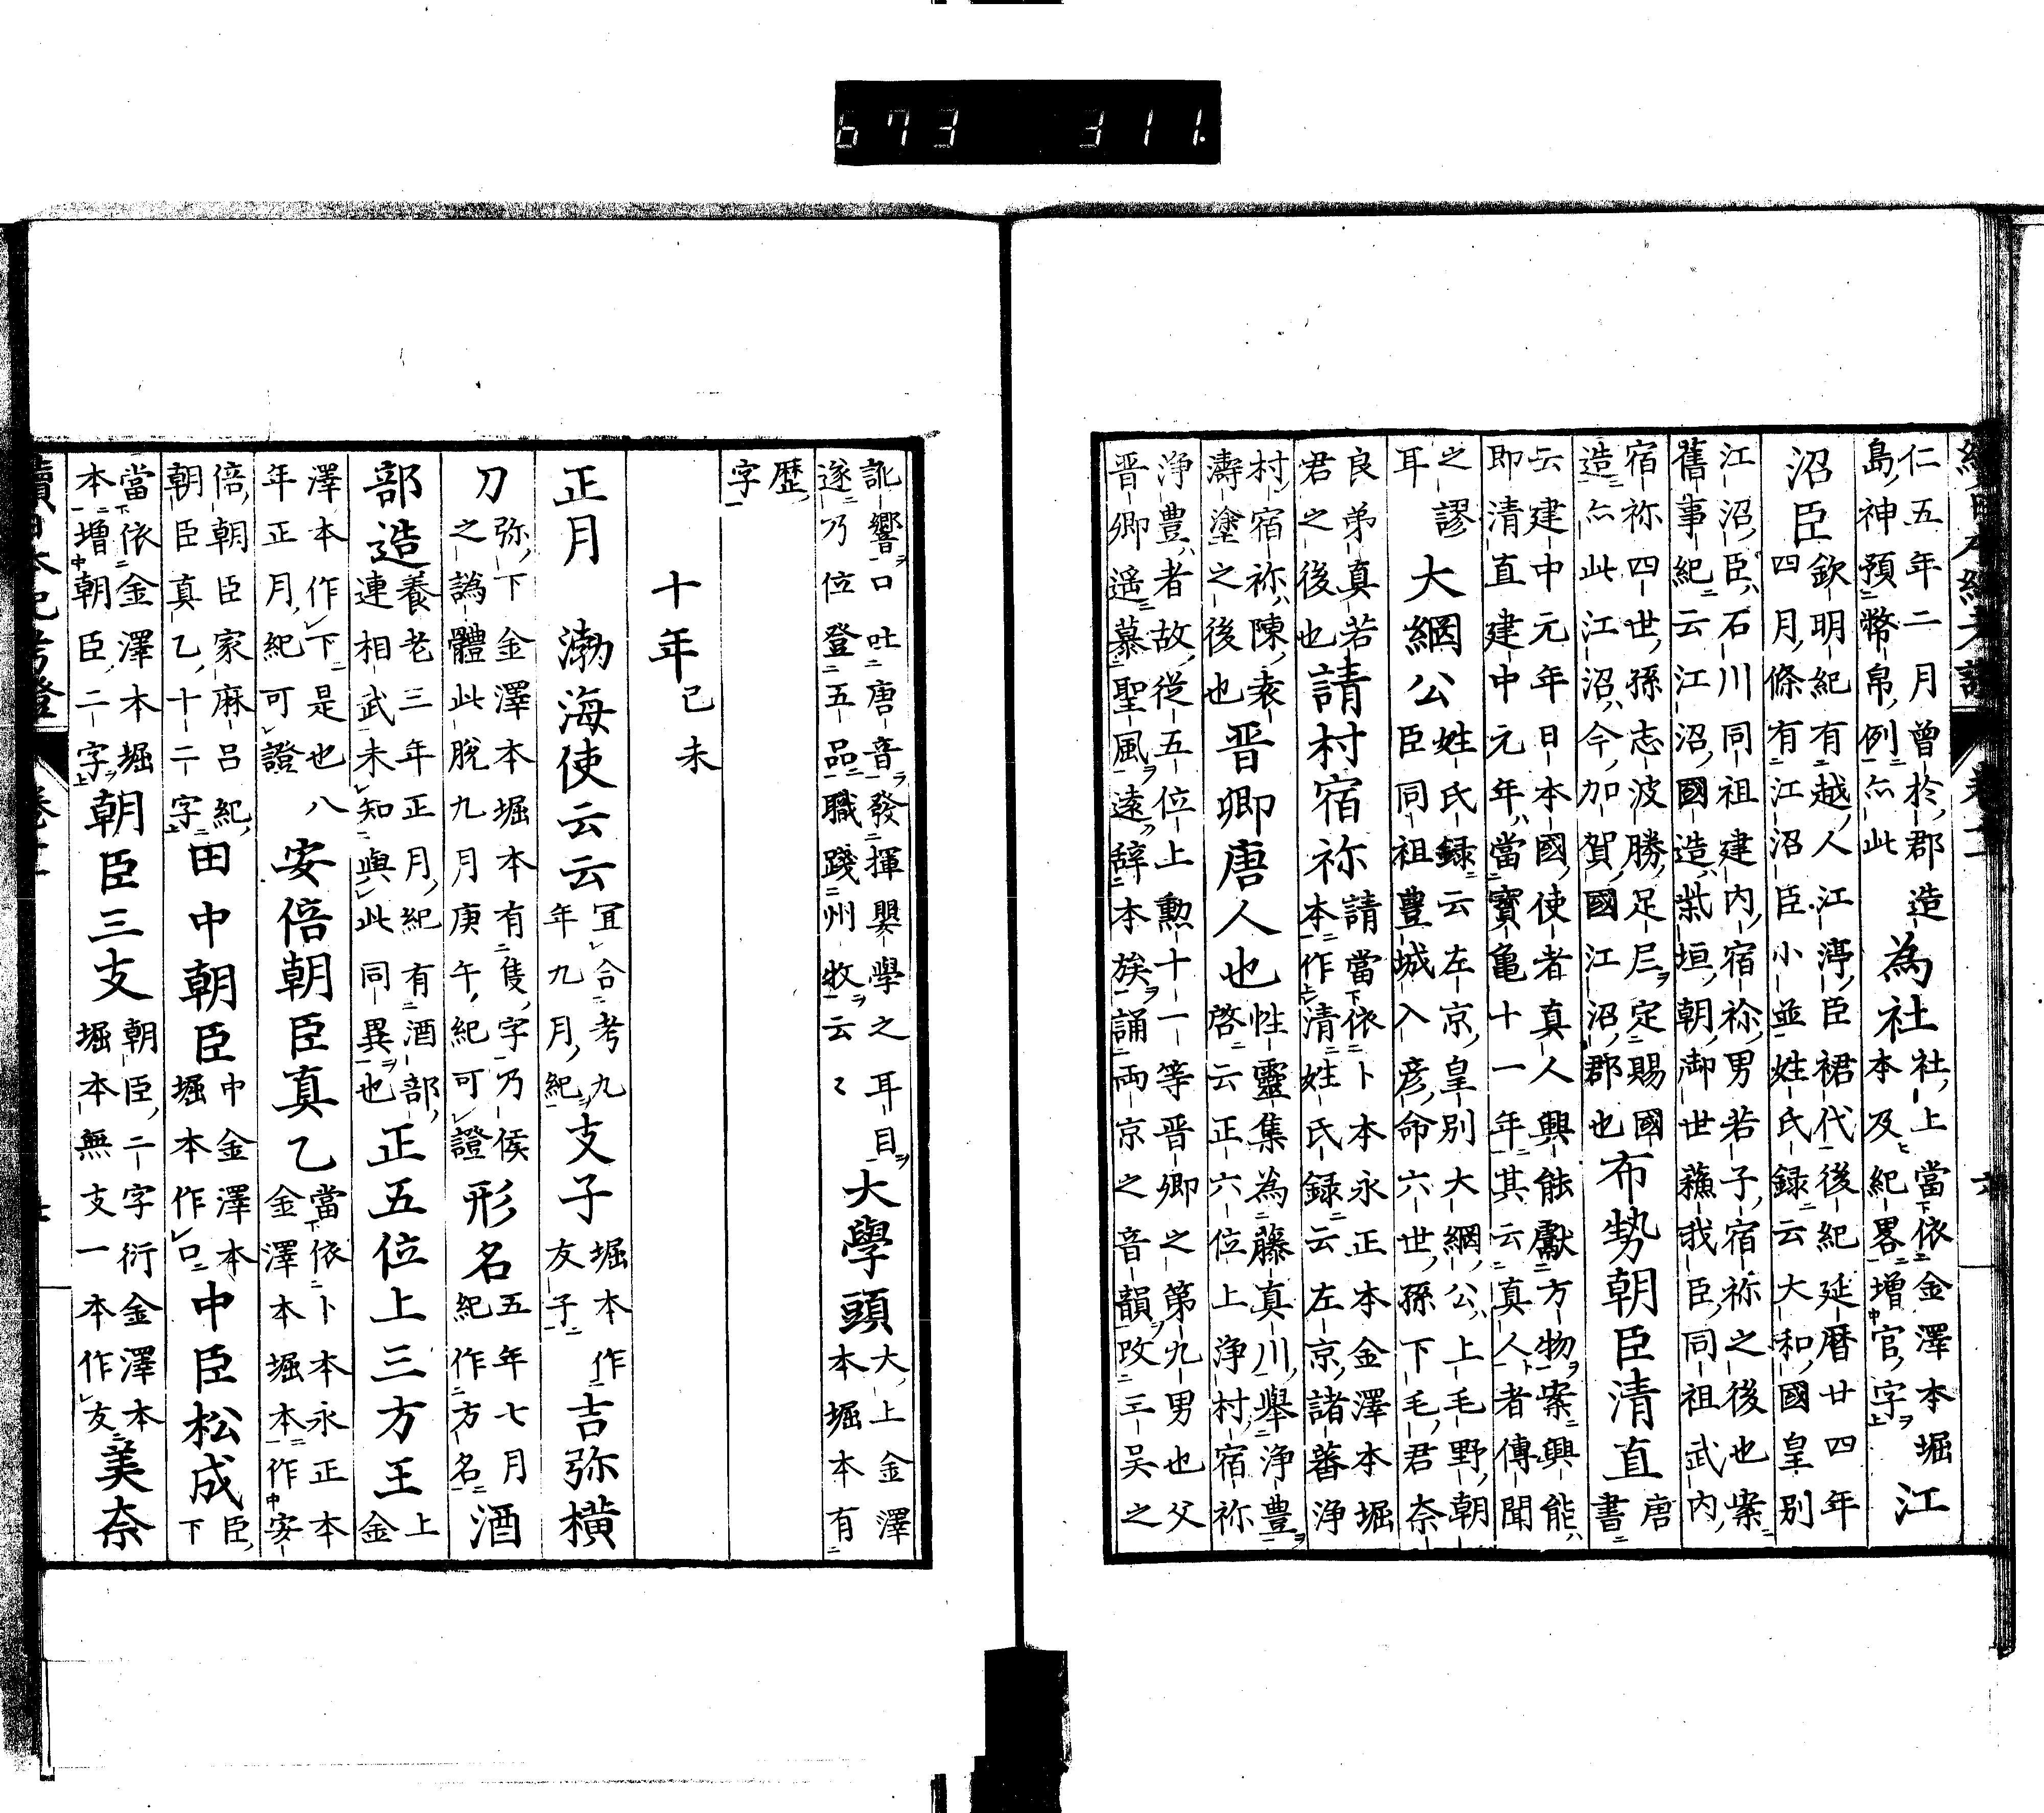 673 311
仁五年二月曾於郡
島神預幣帛例亦此
造為社
社上當依金澤本堀
本及紀畧增官字
江
沼臣
欽明紀有越人江渟臣裙代後紀延曆廿四年
四月條有江沼臣小並姓氏録云大和國皇別
江沼臣石川同祖建内宿祢男若子宿祢之後也案
舊事紀云江沼國造柴垣朝御世蘓我臣同祖武内
宿祢四世孫志波勝足尼定賜國
造亦此江沼今加賀國江沼郡也
布勢朝臣清直
唐
書
云建中元年日本國使者真人興能獻方物案興能
即清直建中元年當寶亀十一年其云真人者傳聞
之謬
耳
大網公
姓氏録云左京皇別大網公上毛野朝
臣同祖豊城入彦命六世孫下毛君奈
良弟真若
君之後也
請村宿祢
請當依卜本永正本金澤本堀
本作清姓氏録云左京諸蕃浄
村宿祢陳袁
濤塗之後也
晋卿唐人也
性靈集為藤真川舉浄豊
啓云正六位上浄村宿祢
浄豊者故從五位上勲十一等晋卿之第九男也父
晋卿遥慕聖風遠辞本族誦両京之音韻改三吴之
訛響口吐唐音發揮嬰學之耳目
遂乃位登五品職踐州牧云々
大學頭
大上金澤
本堀本有
歷
字
十年己未
正月
渤海使云云
冝合考九
年九月紀
支子
堀本作
友子
吉弥横
刀
弥下金澤本堀本有隻字乃侯
之譌體此脫九月庚午紀可證
形名
五年七月
紀作方名
酒
部造
養老三年正月紀有酒部
連相武未知與此同異也
正五位上三方王
上
金
澤本作下是也八
年正月紀可證
安倍朝臣真乙
當依卜本永正本
金澤本堀本作安
倍朝臣家麻呂紀
朝臣真乙十二字
田中朝臣
中金澤本
堀本作口
中臣松成
臣
下
當依金澤本堀
本增朝臣二字
朝臣三支
朝臣二字衍金澤本
堀本無支一本作友
美奈
續日本紀考證